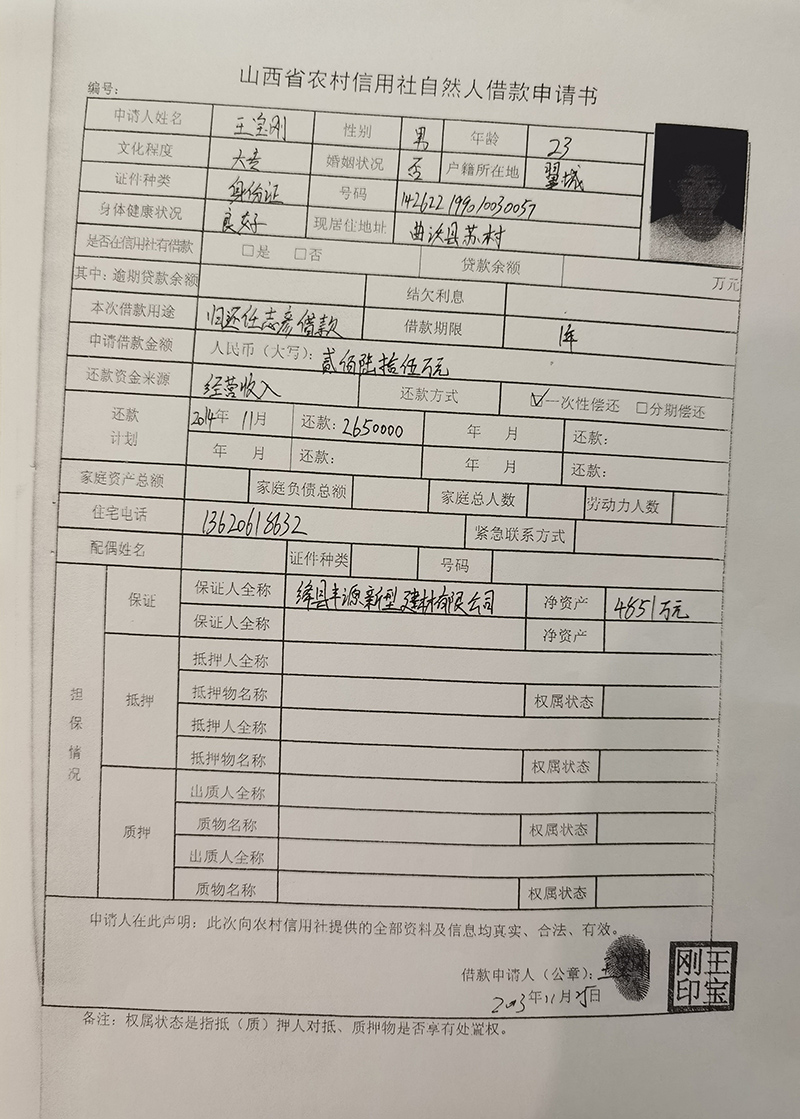 山西省农村信用社自然人借款申请书
编号：
申请人姓名 王宝刚 性别 男 年龄 23
文化程度 大专 婚姻状况 否 户籍所在地 翼城
证件种类 身份证 号码 142622199010030057
身体健康状况 良好 现居住地址 曲沃县苏村
是否在信用社有借款 □是 □否 贷款余额 万元
其中：逾期贷款余额 结欠利息
本次借款用途 归还任志彦借款 借款期限 1年
申请借款金额 人民币（大写）：贰佰陆拾伍万元
还款资金来源 经营收入 还款方式 ☑一次性偿还 □分期偿还
还款计划 2014年 11月 还款：2650000 年 月 还款：
年 月 还款： 年 月 还款：
家庭资产总额 家庭负债总额 家庭总人数 劳动力人数
住宅电话 13620618632 紧急联系方式
配偶姓名 证件种类 号码
担保情况 保证 保证人全称 绛县丰源新型建材有限公司 净资产 4851万元
保证人全称 净资产
抵押 抵押人全称
抵押物名称 权属状态
抵押人全称
抵押物名称 权属状态
质押 出质人全称
质物名称 权属状态
出质人全称
质物名称 权属状态
申请人在此声明：此次向农村信用社提供的全部资料及信息均真实、合法、有效。
借款申请人（公章）：王宝刚
王宝刚印
2013年11月25日
备注：权属状态是指抵（质）押人对抵、质押物是否享有处置权。